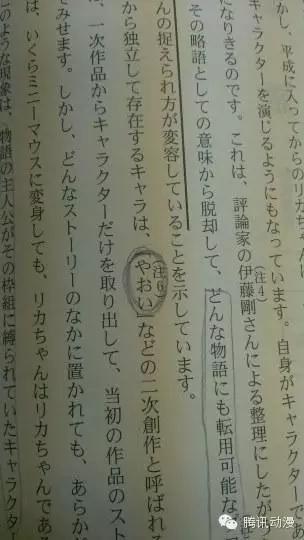 かし、平成に入ってからのリカちゃん
ャラクターを演じるようにもなっています。自身がキャラクターで
になりきるのです。これは、評論家の伊藤剛(注4)さんによる整理にしたが
その略語としての意味から脱却して、どんな物語にも転用可能な
んの捉えられ方が変容していることを示しています。
から独立して存在するキャラは、やおい(注6)などの二次創作と呼ばれる
、一次作品からキャラクターだけを取り出して、当初の作品のスト
てみせます。しかし、どんなストーリーのなかに置かれても、あらか
は、いくらミニーマウスに変身しても、リカちゃんはリカちゃんである
このような現象は、物語の主人公がその枠組に縛られていたキャラクタ
腾讯动漫